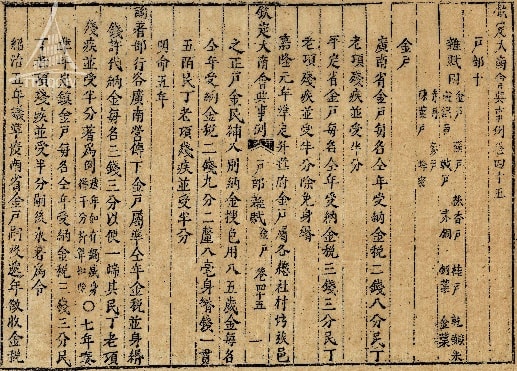 欽定大南會典事例卷四十五
戶部十
雜賦四 金戶 桂戶 乾蝦米 赤銅 金葉
金戶
廣南省金戶每名仝年受納金稅二錢八分民丁
老項殘疾並受半分
平定省金戶每名仝年受納金稅三錢三分民丁
老項殘疾並受半分除免身緡
嘉隆元年準定升華府金戶屬各總社村坊族邑
欽定大南會典事例 戶部雜賦 金戶 卷四十五 一
之正戶金民補入別納金搜色用八五歲金每名
仝年受納金稅二錢九分二釐八毫身緡錢一貫
五陌民丁老項殘疾並受半分
明命五年
諭著部行咨廣南營傳丁金戶屬準仝年金稅並身緡
錢許代納金每名三錢三分以便一歸其民丁老項
殘疾並受半分著為例 〇七年奏
準 鎮金戶每名仝年受納金稅三錢三分民
丁老項殘疾並受半分嗣後永著為令
紹治五年議準廣南省金戶嗣後遞年徵收金稅